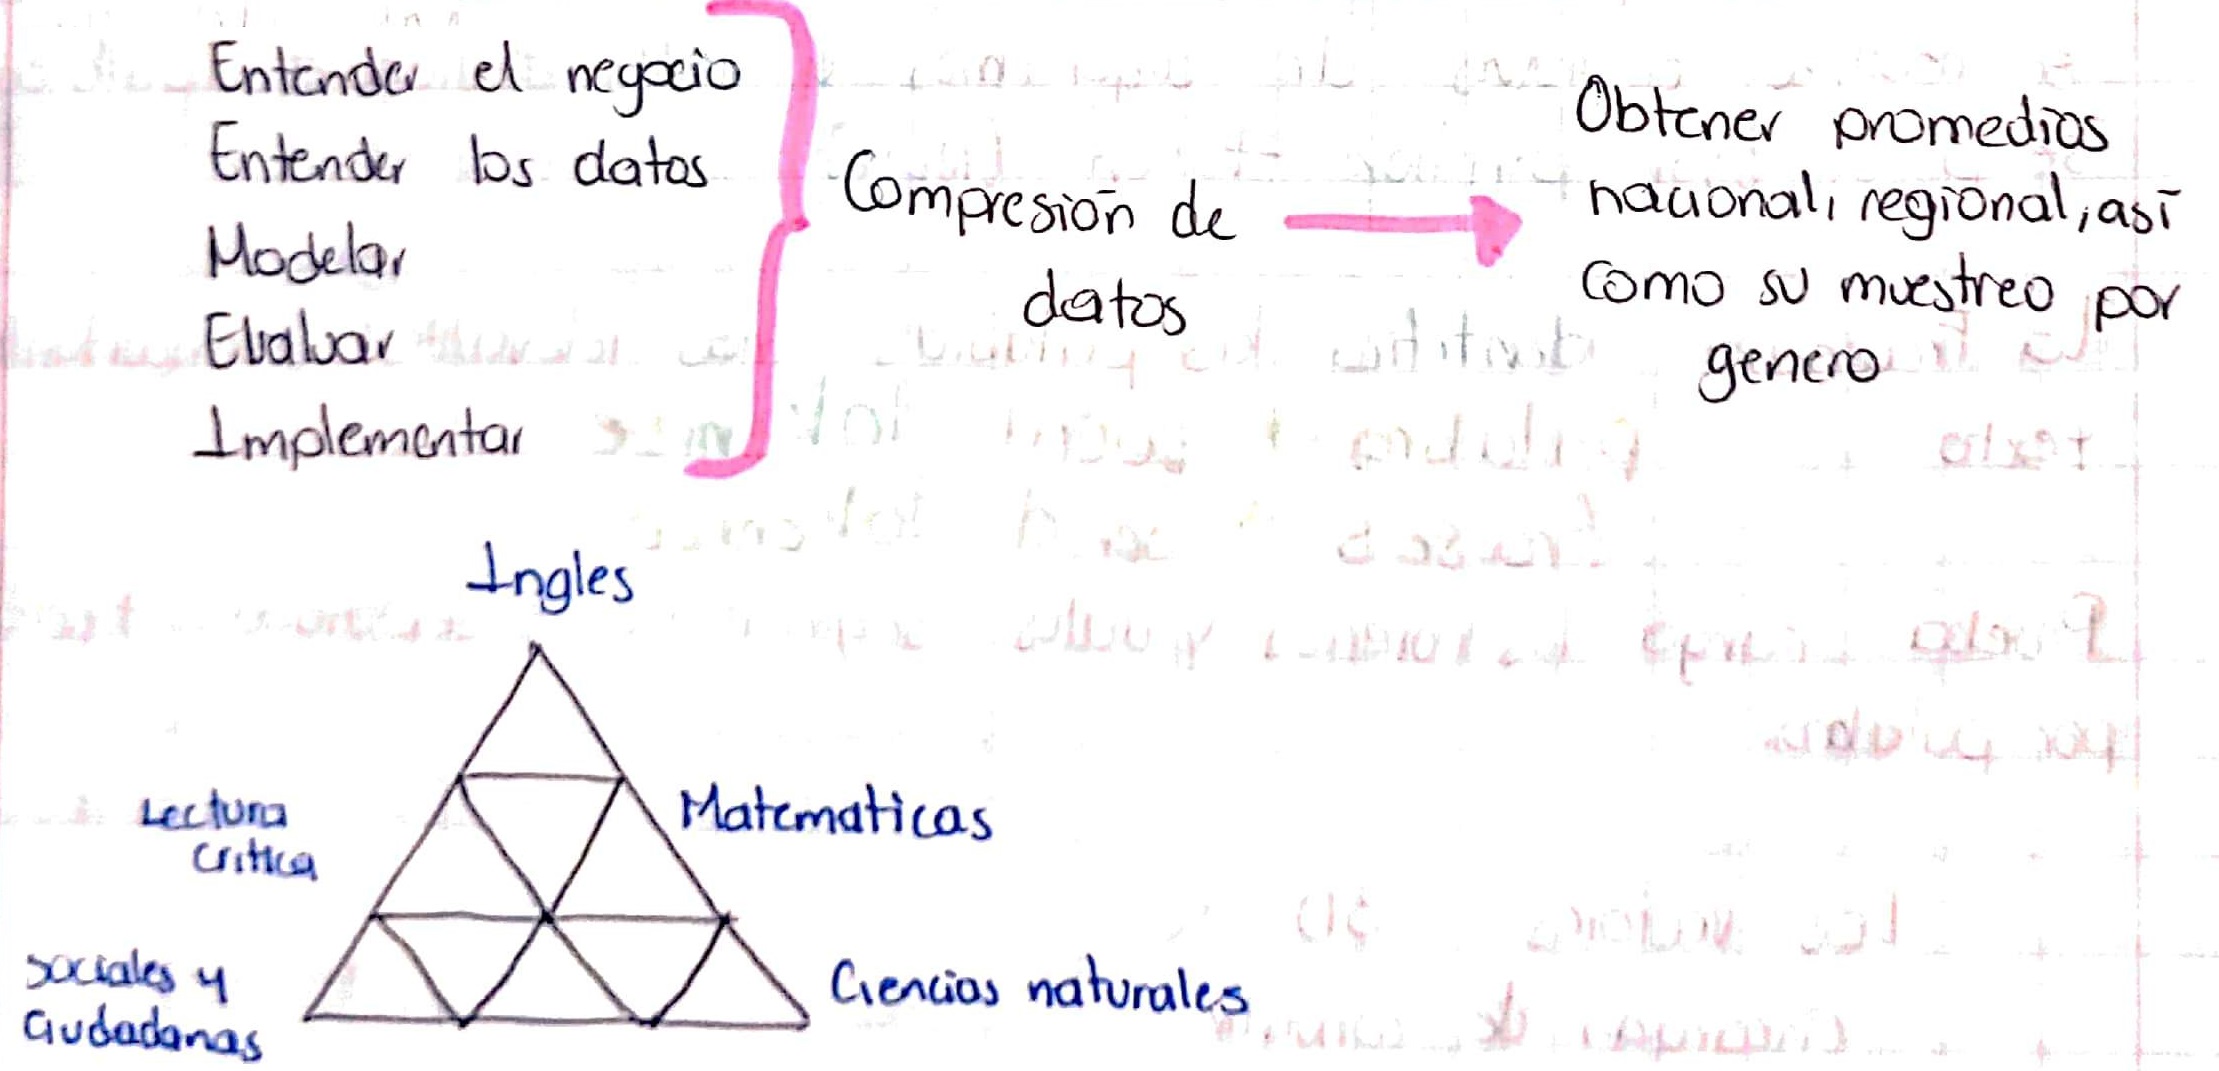 Entender el negocio
Entender los datos
Modelar
Evaluar
Implementar
Compresión de
datos
Obtener promedios
nacional, regional, así
como su muestreo por
genero
Ingles
Lectura
critica
Matematicas
Sociales y
Ciudadanas
Ciencias naturales